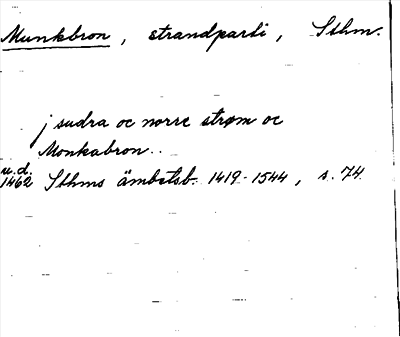 Munkbron, strandparti, Sthm.
j sudra oc norre strøm oc
Monkabron..
u.d.
1462 Sthms ämbetsb. 1419-1544, s. 74